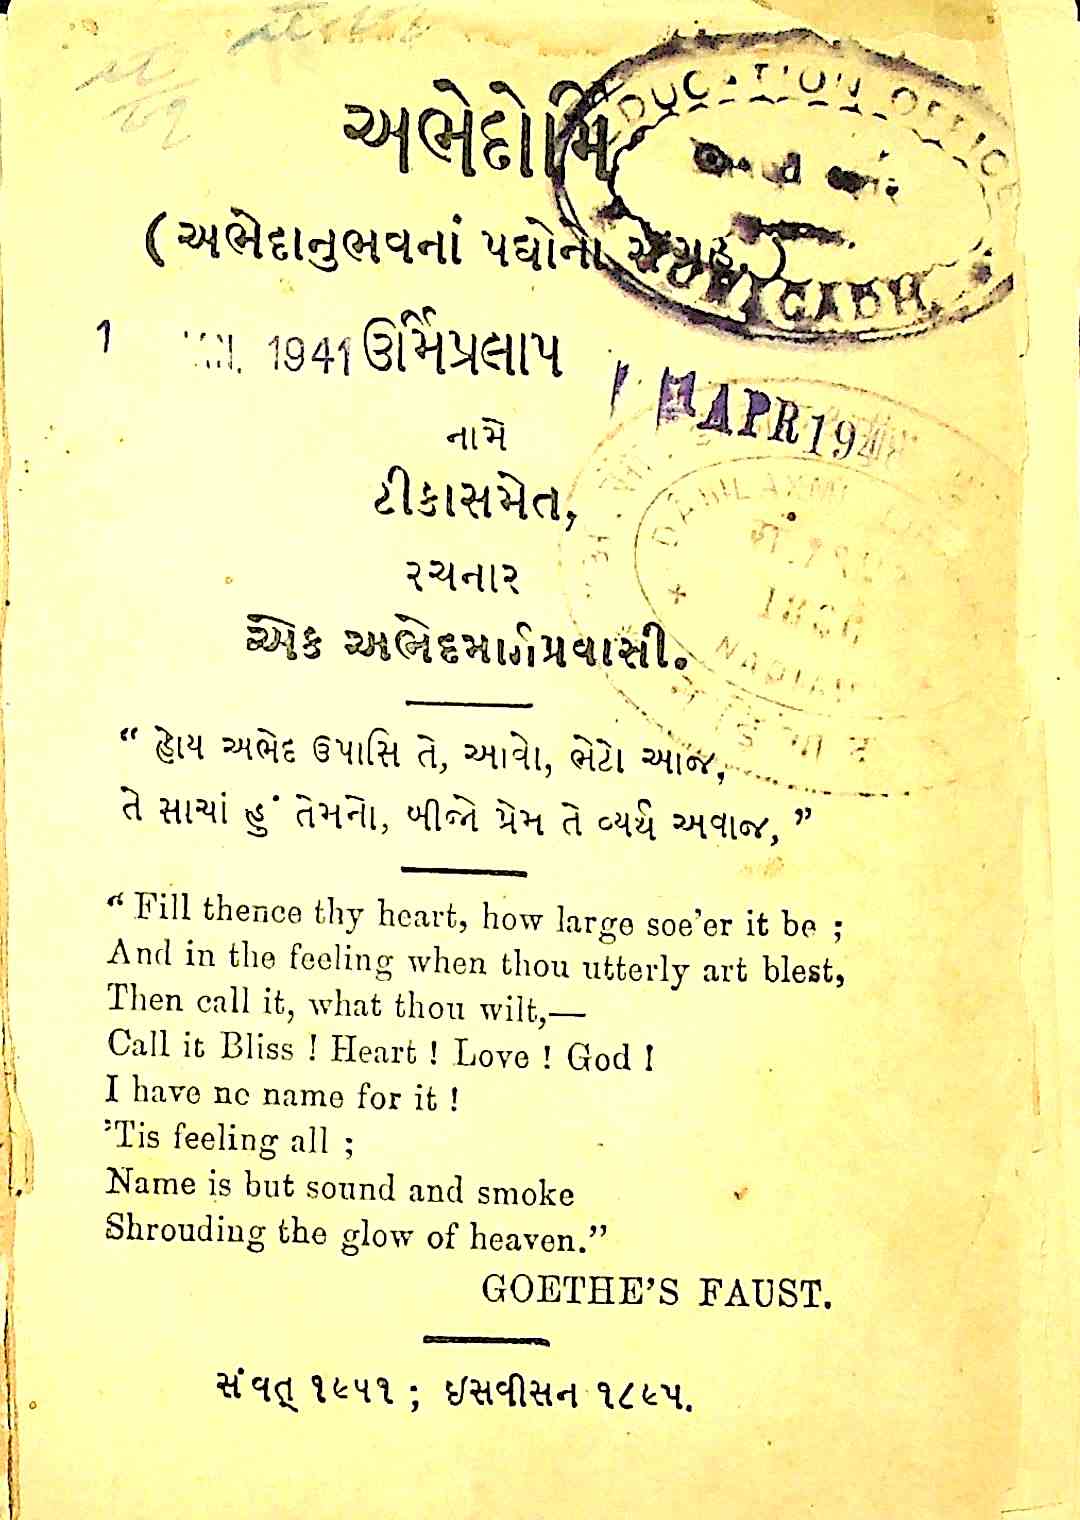 અભેદોર્મિ
EDUCATION OFFICE
(અભેદાનુભવનાં પદ્યોનો સંગ્રહ.)
JUNAGADH
1 1941 ઊર્મિપ્રલાપ
APR 194
નામે
ટીકાસમેત,
DAHILAXMI
રચનાર
એક અભેદમાર્ગપ્રવાસી.
NADIAD
“ હોય અભેદ ઉપાસિ તે, આવો, ભેટો આજ,
તે સાચાં હું તેમનો, બીજો પ્રેમ તે વ્યર્થ અવાજ, ”
“ Fill thence thy heart, how large soe’er it be ;
And in the feeling when thou utterly art blest,
Then call it, what thou wilt,—
Call it Bliss ! Heart ! Love ! God !
I have no name for it !
’Tis feeling all ;
Name is but sound and smoke
Shrouding the glow of heaven.”
GOETHE’S FAUST.
સંવત્ ૧૯૫૧ ; ઇસવીસન ૧૮૯૫.